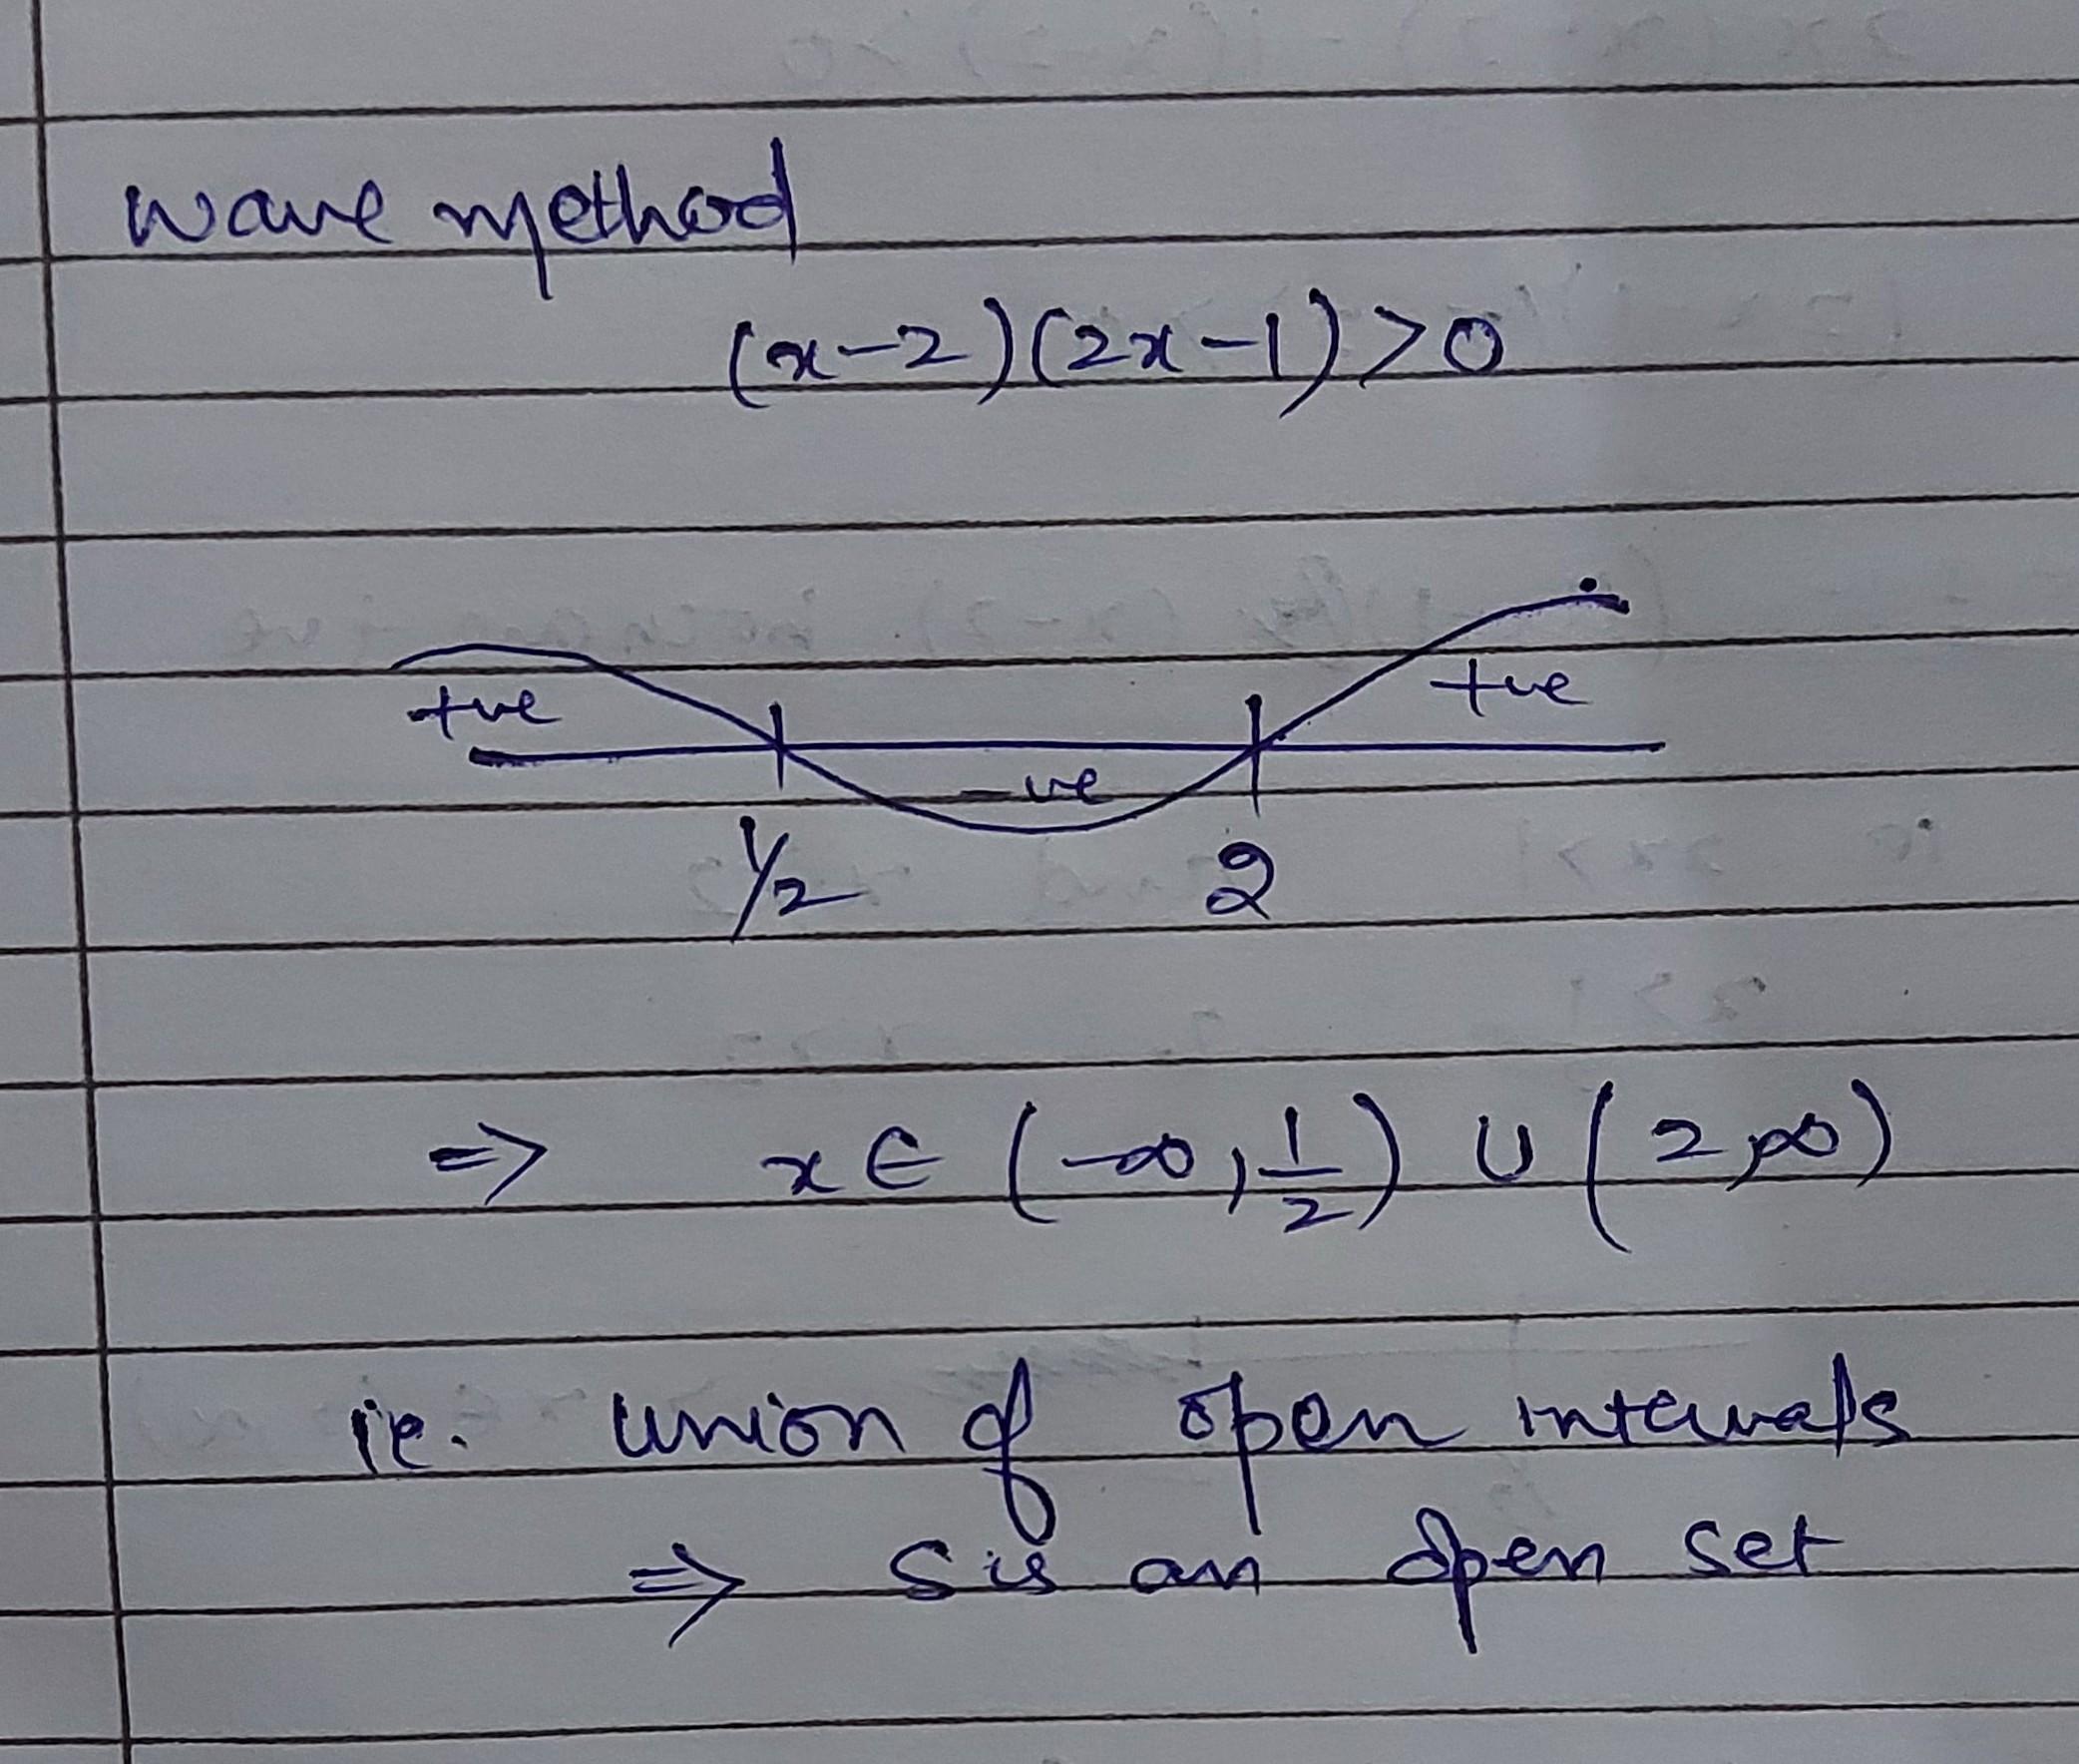 wave method
(x-2)(2x-1)>0
+ve
+ve
-ve
1/2 2
=> x ∈ (-∞, 1/2) ∪ (2, ∞)
ie. union of open intervals
=> S is an open set